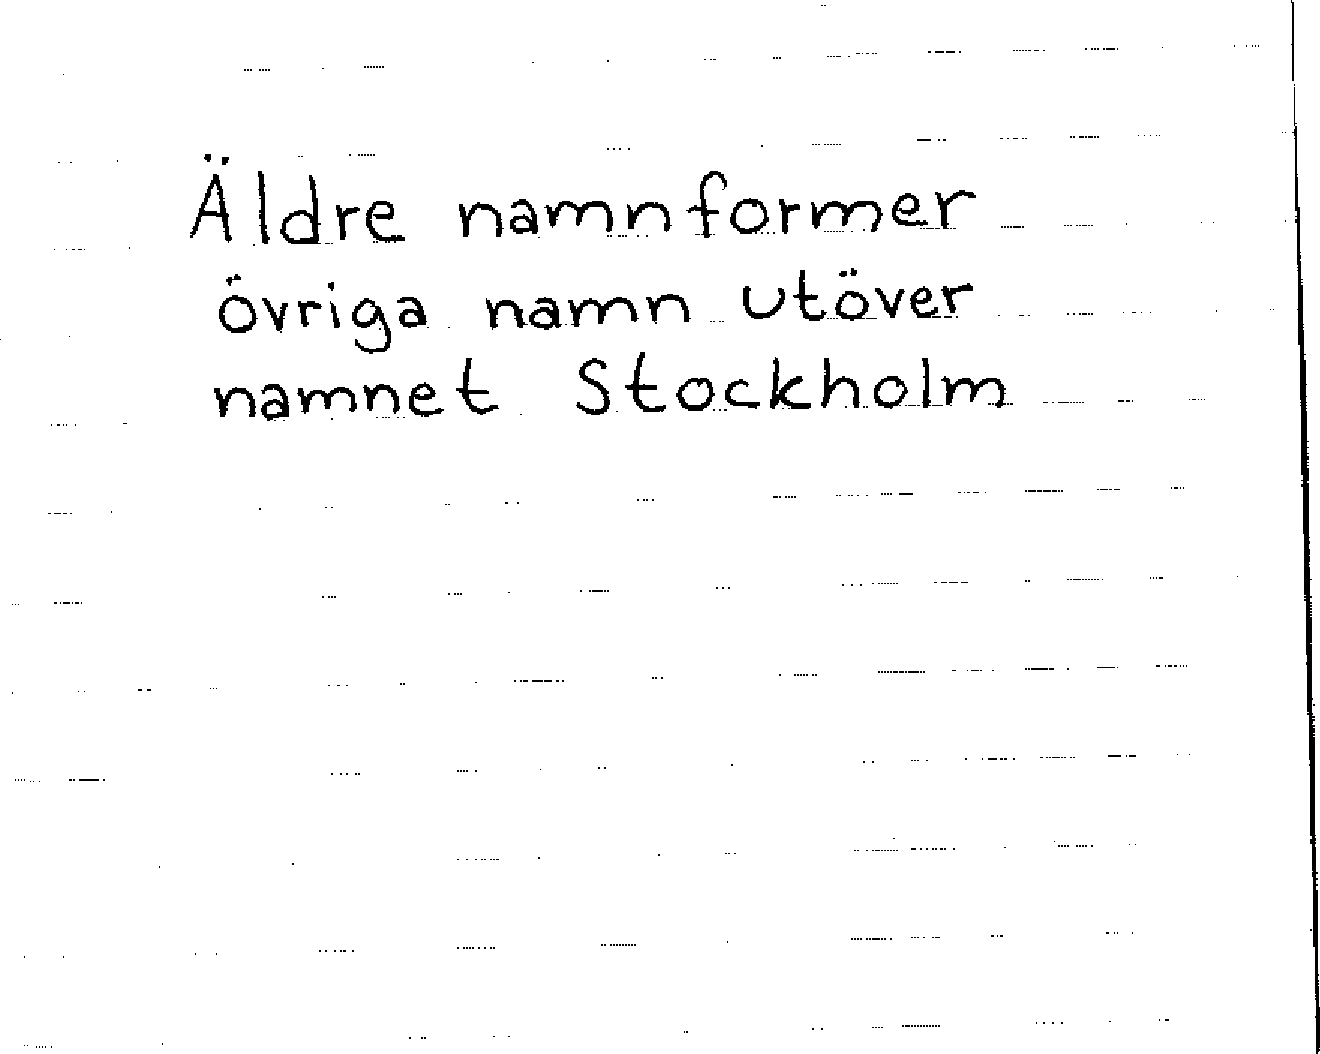 Äldre namnformer
övriga namn utöver
namnet Stockholm